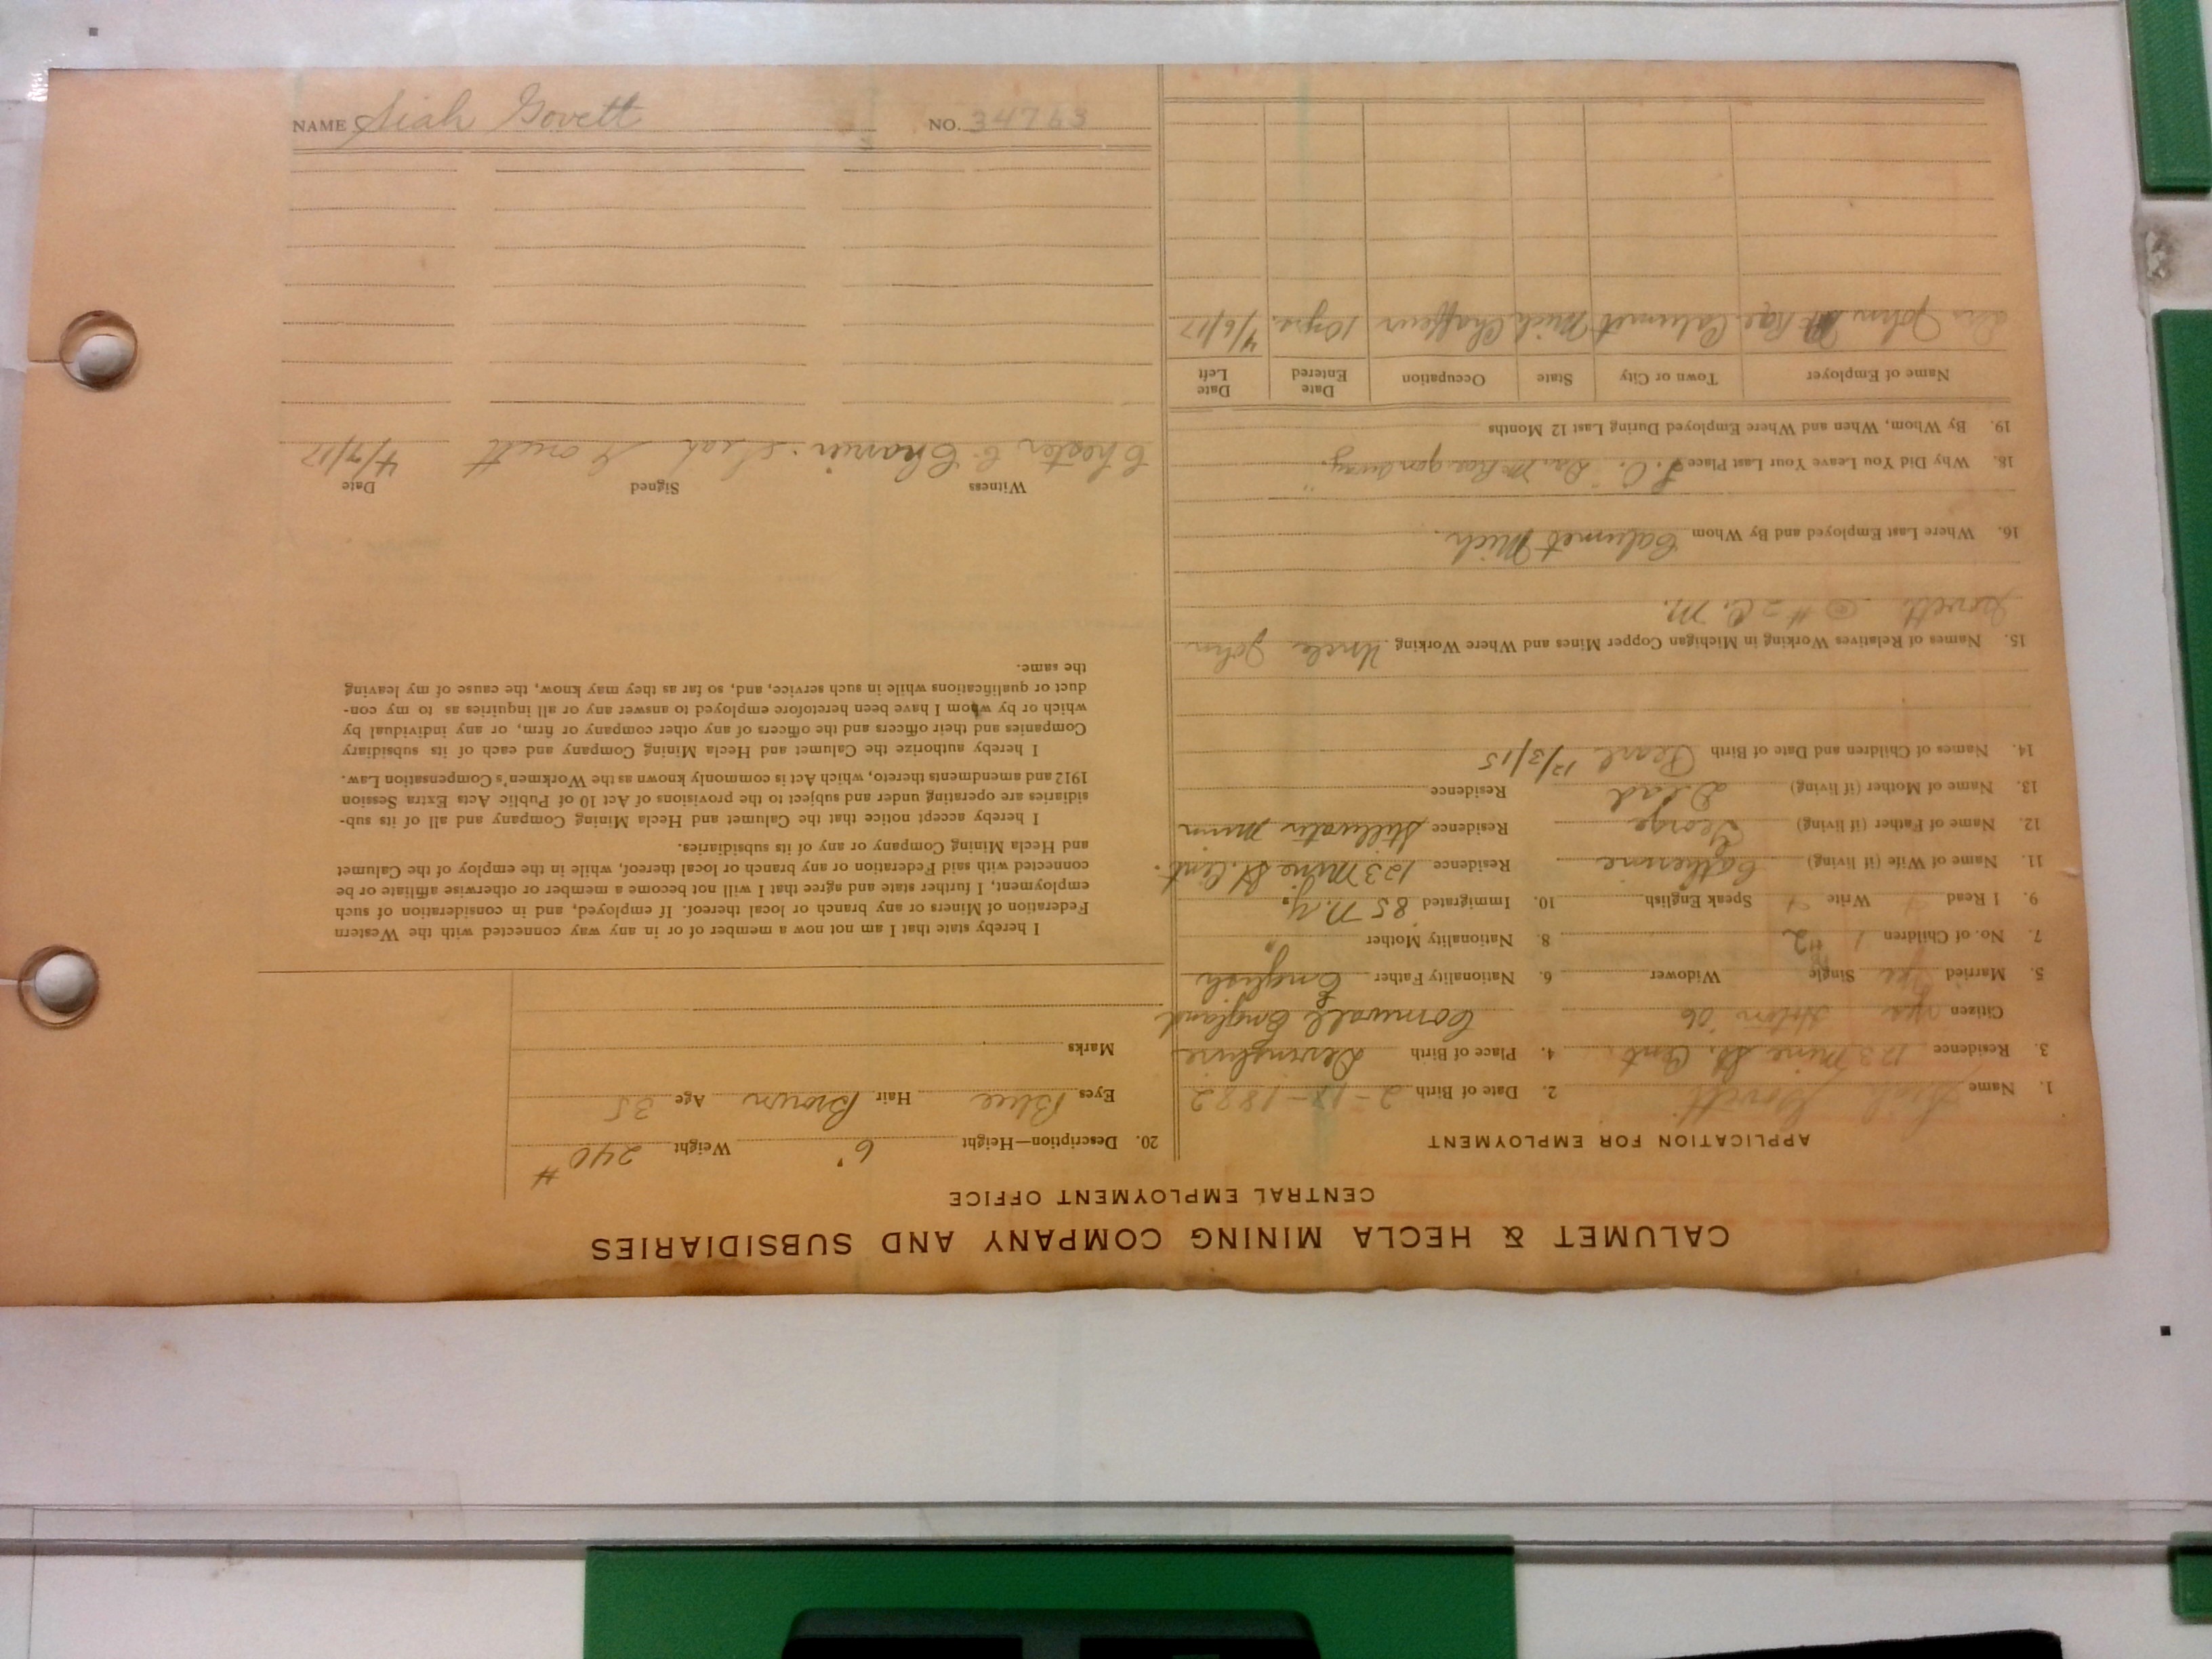 NAME Siah Govett NO. 34763
CALUMET & HECLA MINING COMPANY AND SUBSIDIARIES
CENTRAL EMPLOYMENT OFFICE
APPLICATION FOR EMPLOYMENT
1. Name Siah Govett 2. Date of Birth 2-18-1882
3. Residence 123 Mine St. Cent. 4. Place of Birth Devinshire
Citizen yes '06 Cornwall England
5. Married yes Single Widower 6. Nationality Father English
7. No. of Children 1 #2 8. Nationality Mother "
9. I Read Write Speak English 10. Immigrated 85 N.Y.
11. Name of Wife (if living) Catherine Residence 123 Mine St. Cent.
12. Name of Father (if living) George Residence Stillwater Minn
13. Name of Mother (if living) Dead Residence
14. Names of Children and Date of Birth Pearl 12/3/15
15. Names of Relatives Working in Michigan Copper Mines and Where Working Uncle John
Govett @ #2 C. M.
16. Where Last Employed and By Whom Calumet Mich.
18. Why Did You Leave Your Last Place Dr. McRae gon away.
19. By Whom, When and Where Employed During Last 12 Months
Name of Employer Town or City State Occupation Date Entered Date Left
John McRae Calumet Mich Chaffeur 10 yrs. 4/6/17
20. Description—Height 6' Weight 240 #
Eyes Blue Hair Brown Age 35
Marks
I hereby state that I am not now a member of or in any way connected with the Western
Federation of Miners or any branch or local thereof. If employed, and in consideration of such
employment, I further state and agree that I will not become a member or otherwise affiliate or be
connected with said Federation or any branch or local thereof, while in the employ of the Calumet
and Hecla Mining Company or any of its subsidiaries.
I hereby accept notice that the Calumet and Hecla Mining Company and all of its sub-
sidiaries are operating under and subject to the provisions of Act 10 of Public Acts Extra Session
1912 and amendments thereto, which Act is commonly known as the Workmen's Compensation Law.
I hereby authorize the Calumet and Hecla Mining Company and each of its subsidiary
Companies and their officers and the officers of any other company or firm, or any individual by
which or by whom I have been heretofore employed to answer any or all inquiries as to my con-
duct or qualifications while in such service, and, so far as they may know, the cause of my leaving
the same.
Witness Signed Date
Chester C. Siah Govett 4/7/17